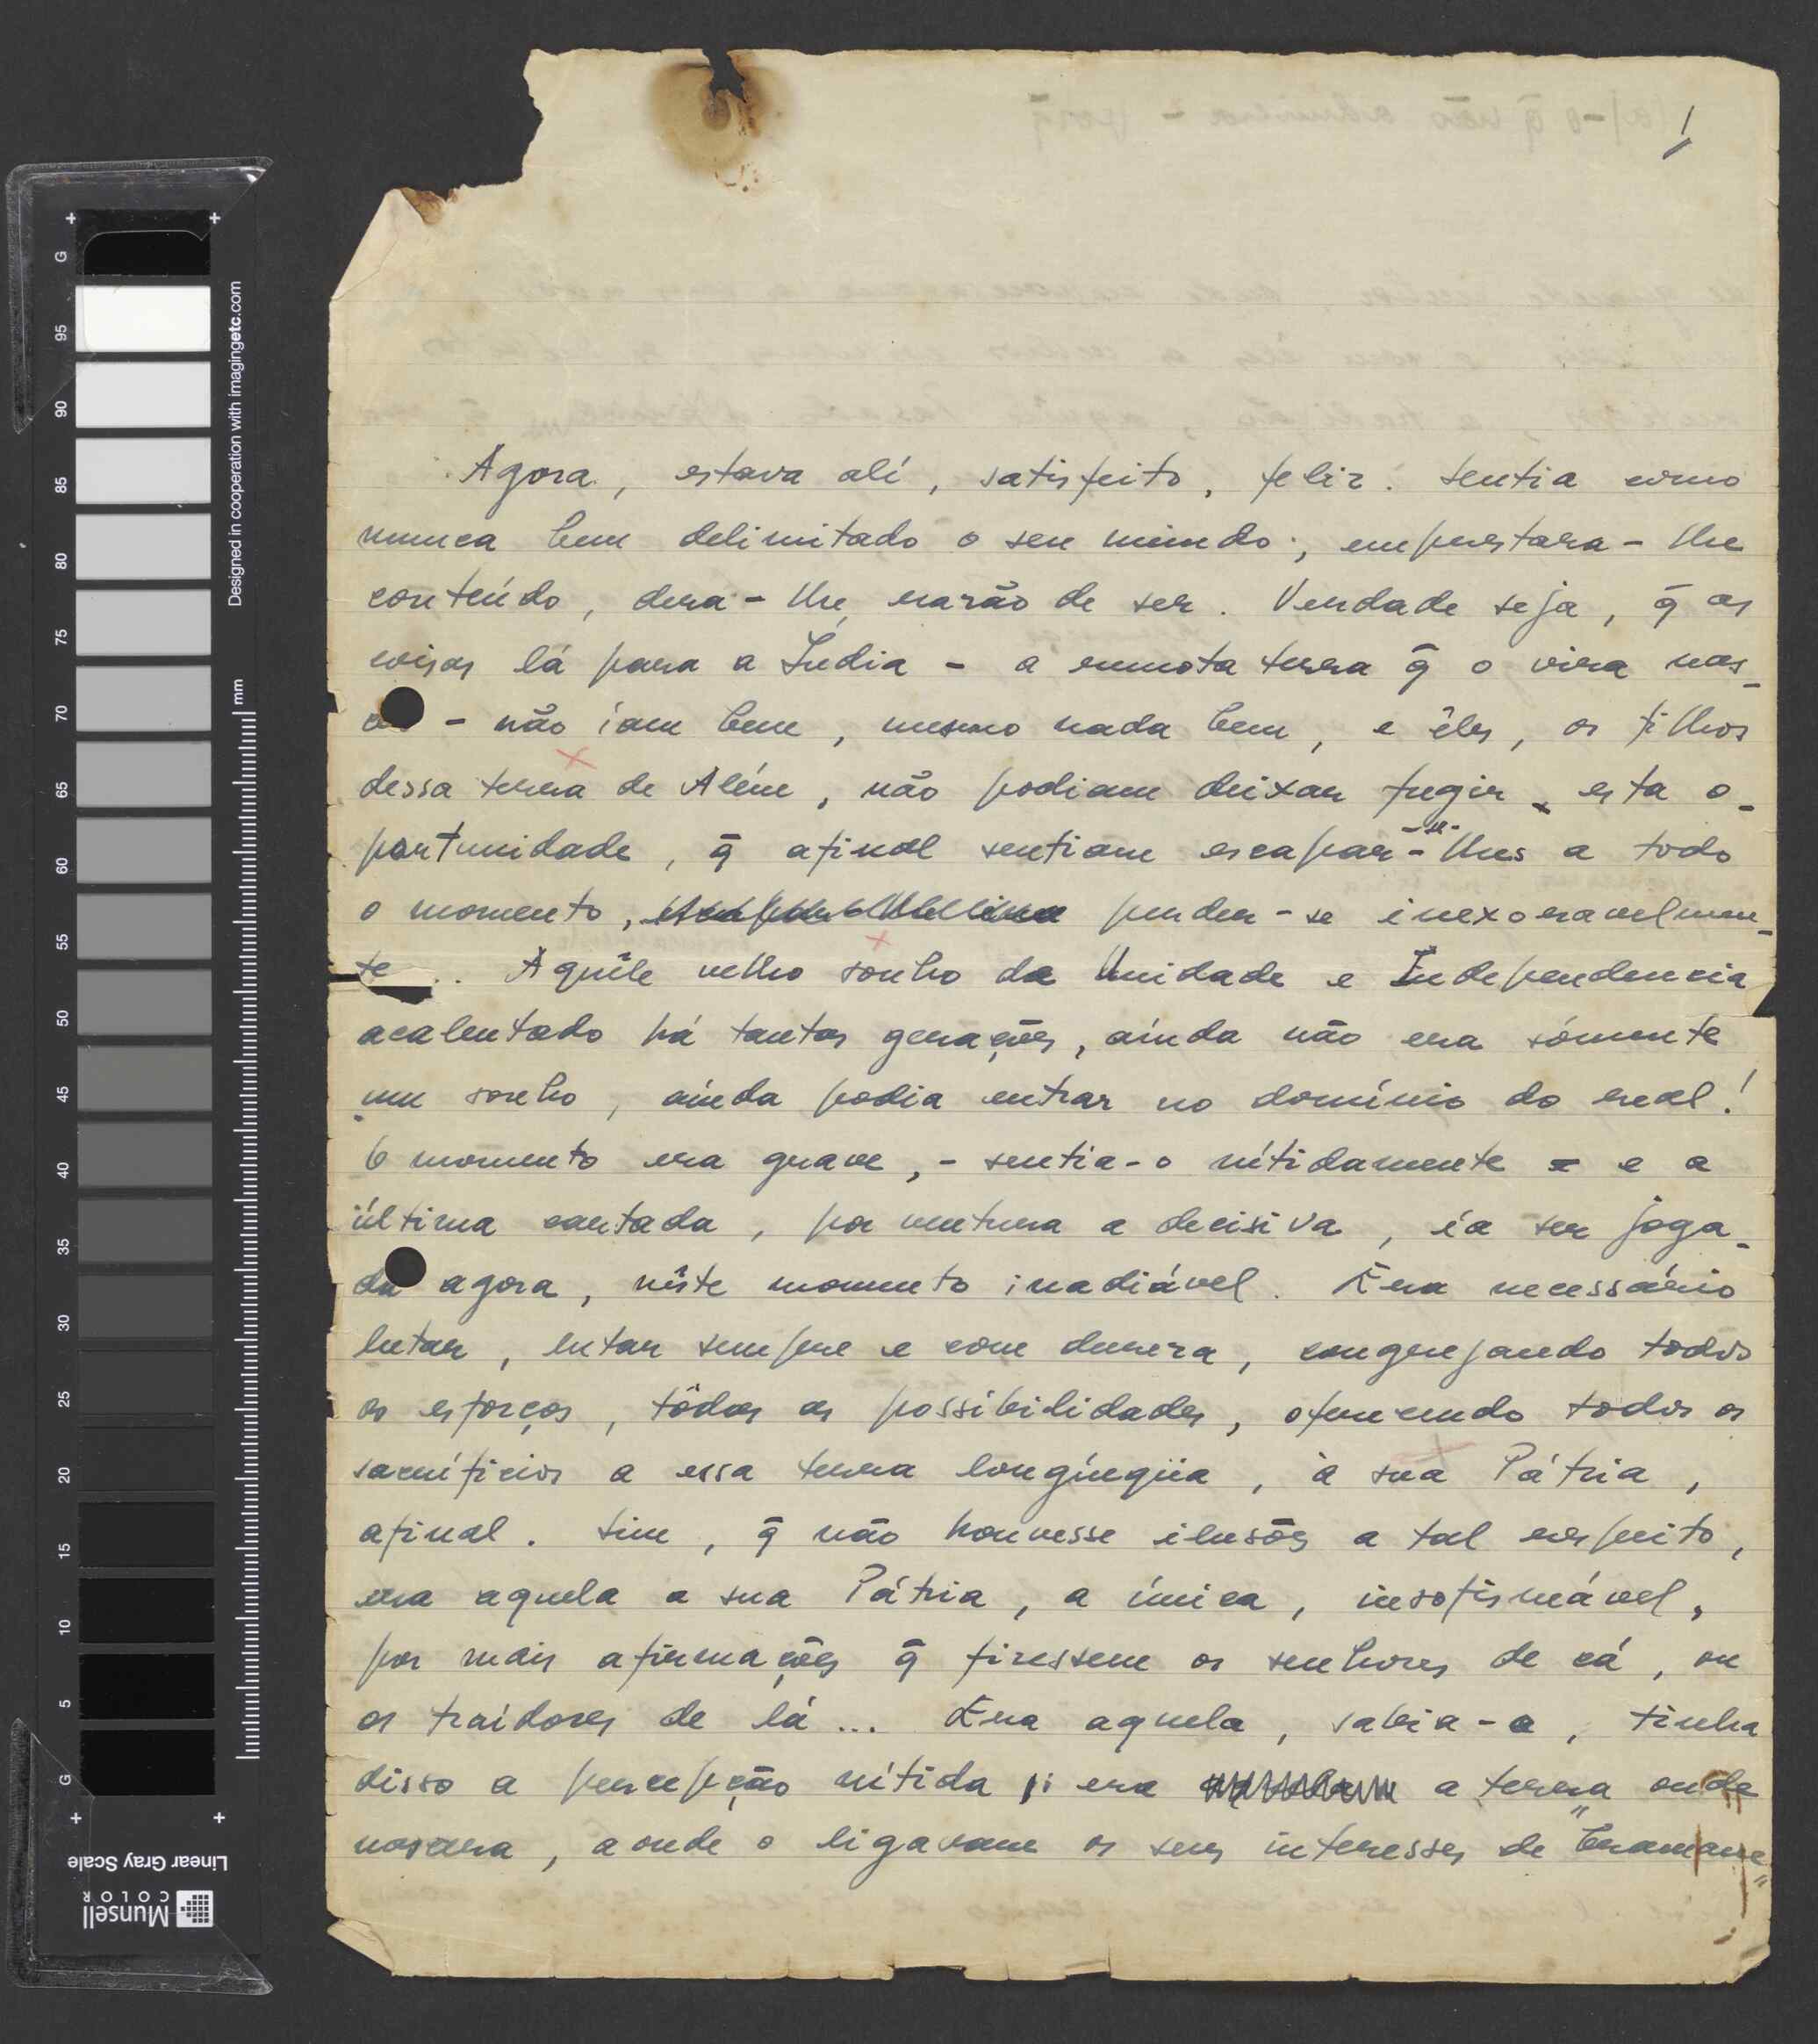 1
Agora, estava alí, satisfeito, feliz. Sentia como
nunca bem delimitado o seu mundo; emprestara-lhe
conteúdo, dera-lhe razão de ser. Verdade seja, q̃ as
coisas lá para a Índia - a remota terra q̃ o vira nas_
- não íam bem, mesmo nada bem, e êles, os filhos
dessa terra de Além, não podiam deixar fugir esta o_
portunidade, q̃ afinal sentiam escapar-se-lhes a todo
o momento, perder-se inexoravelmen_
te.. Aquêle velho sonho da Unidade e Independencia
acalentado há tantas gerações, aínda não era sómente
um sonho, aínda podia entrar no domínio do real!
O momento era grave, - sentia-o nítidamente - e a
última cartada, porventura a decisiva, ía ser joga_
da agora, nêste momento inadiável. Era necessário
lutar, lutar sempre e com dureza, congregando todos
os esforços, tôdas as possibilidades, oferecendo todos os
sacrifícios a essa terra longínqüa, à sua Pátria,
afinal. Sim, q̃ não houvesse ilusões a tal respeito,
era aquela a sua Pátria, a única, insofismável,
por mais afirmações q̃ fizessem os senhores de cá, ou
os traídores de lá... Era aquela, sabia-o, tinha
disso a percepção nítida; era a terra onde
nascera, aonde o ligavam os seus interesses de "bramane"
Designed in cooperation with imagingetc.com
mm
G 95 90 85 80 75 70 65 60 55 50 45 40 35 30 25 20 15 10 5 G
Linear Gray Scale
Munsell
COLOR